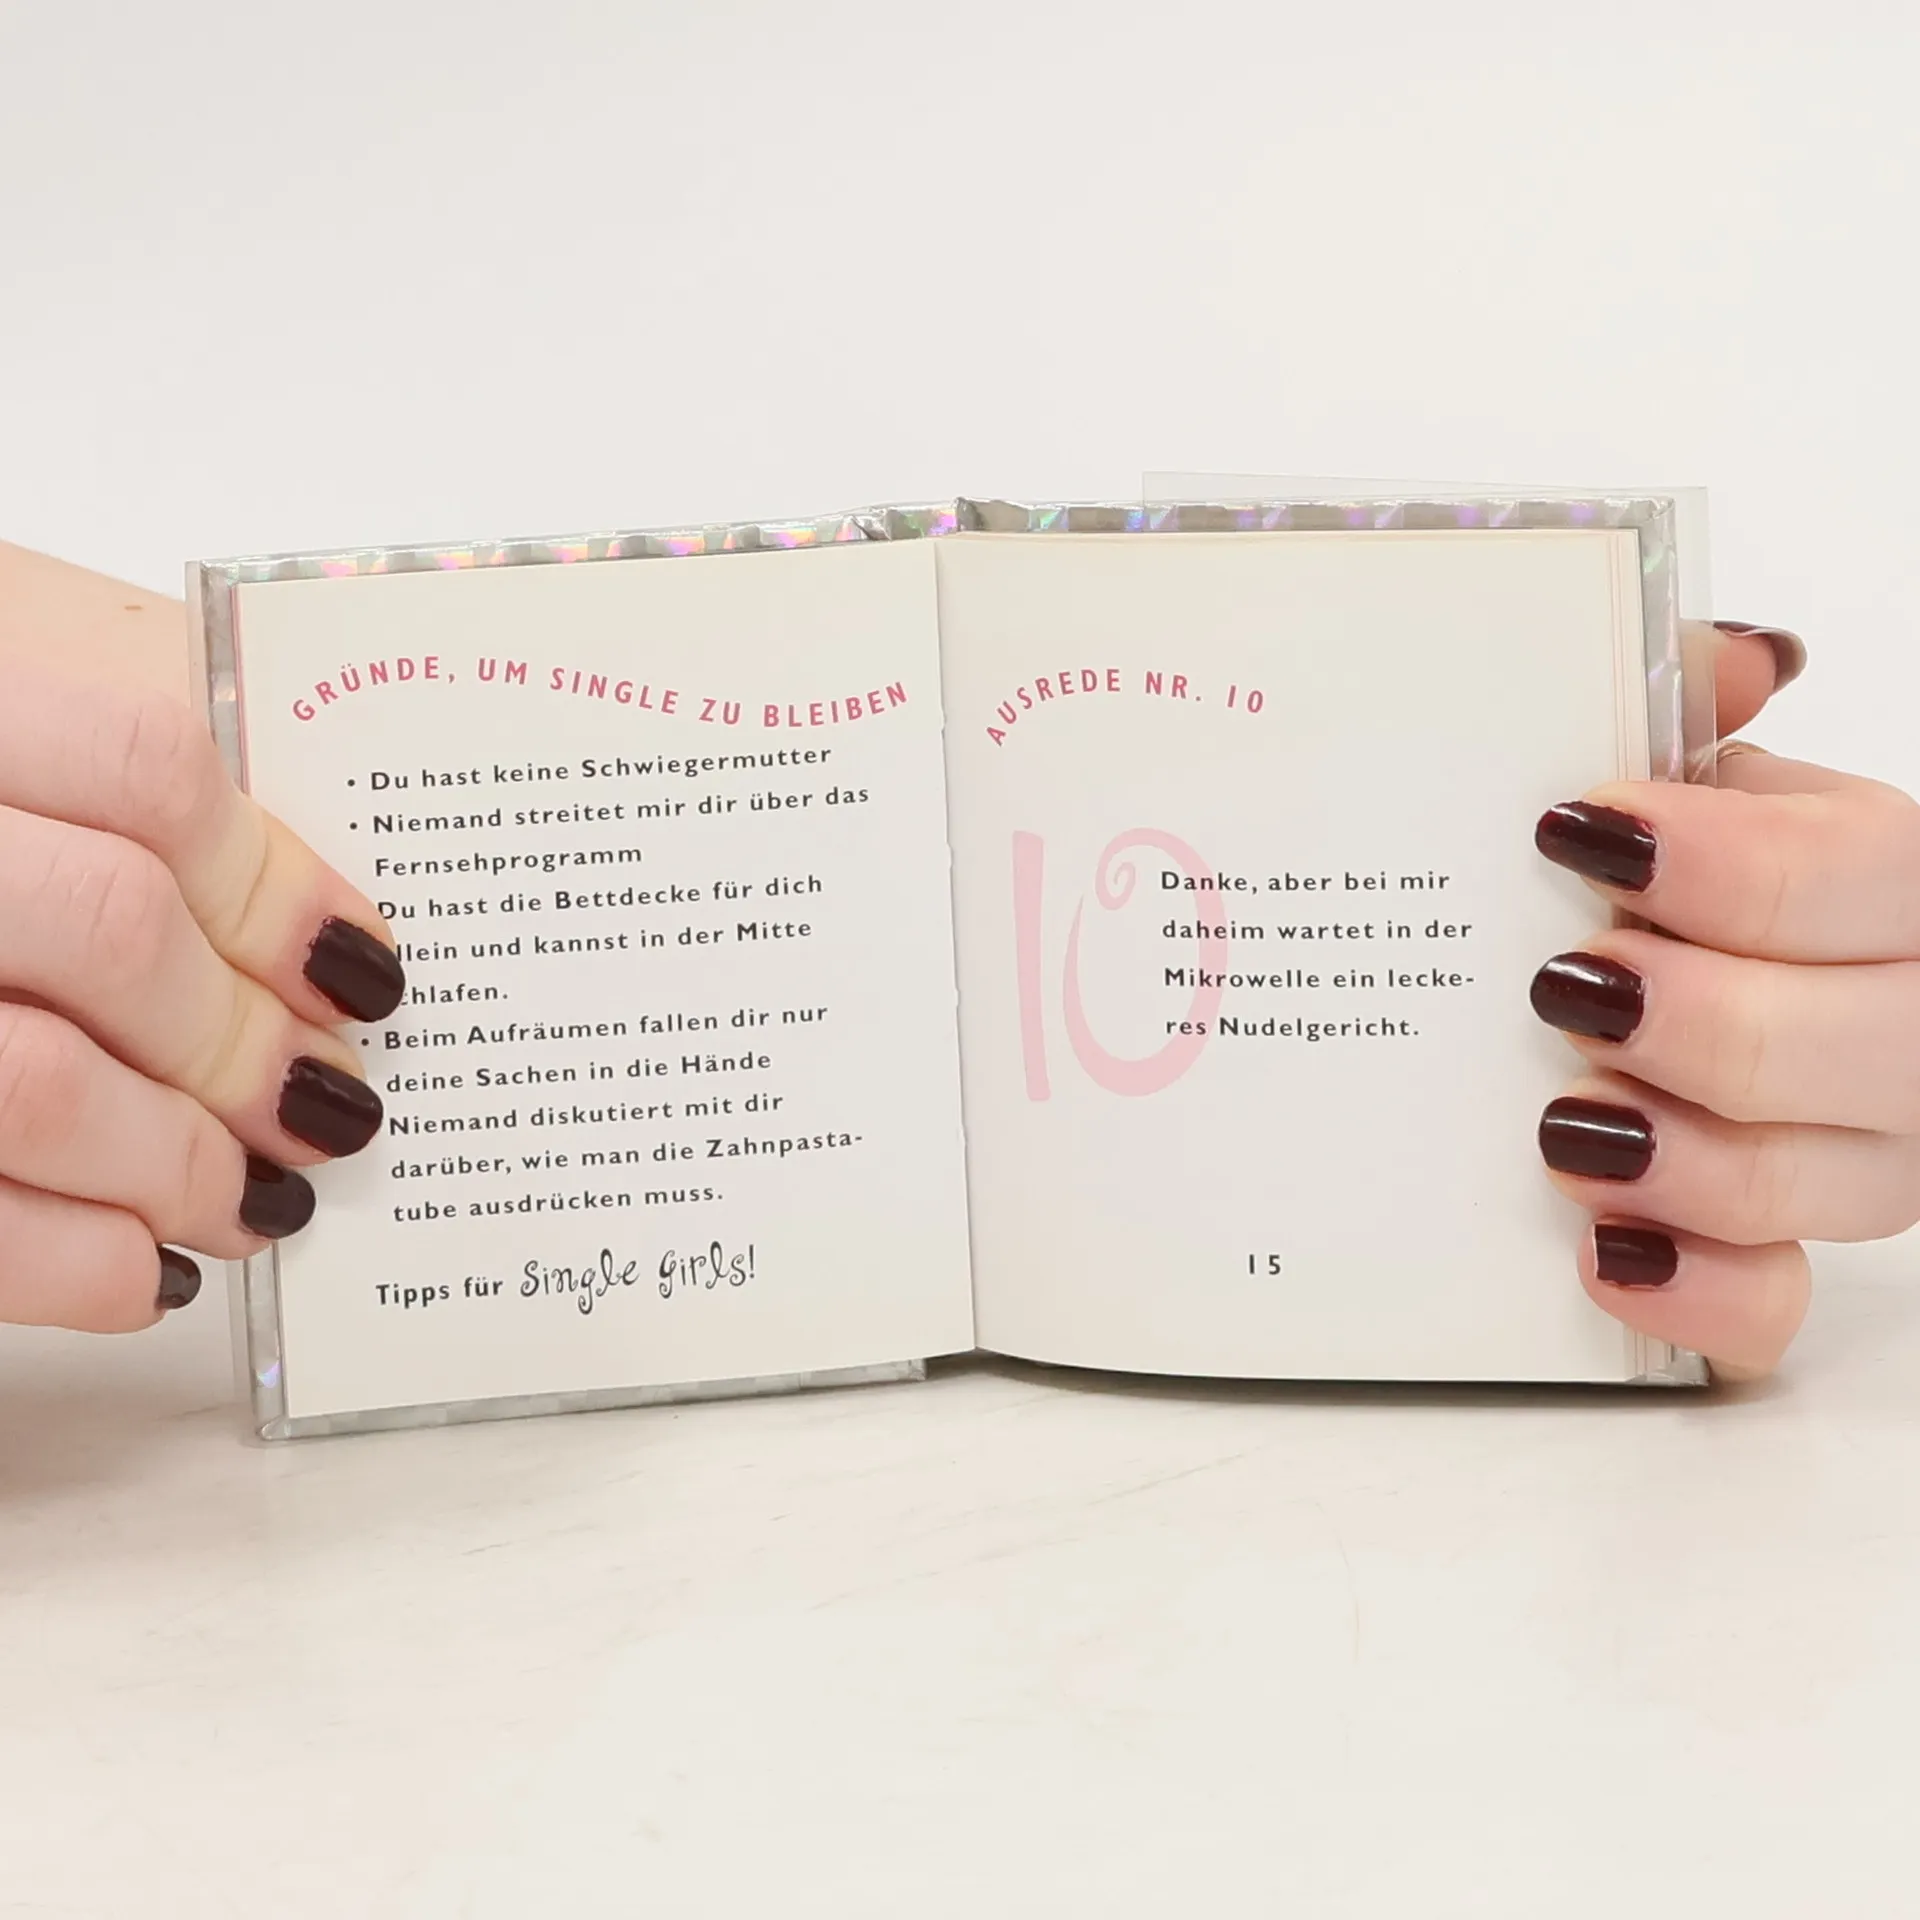 GRÜNDE, UM SINGLE ZU BLEIBEN
• Du hast keine Schwiegermutter
• Niemand streitet mir dir über das
Fernsehprogramm
Du hast die Bettdecke für dich
und kannst in der Mitte
• Beim Aufräumen fallen dir nur
deine Sachen in die Hände
Niemand diskutiert mit dir
darüber, wie man die Zahnpasta-
tube ausdrücken muss.
Tipps für Single Girls!
AUSREDE NR. 10
10
Danke, aber bei mir
daheim wartet in der
Mikrowelle ein lecke-
res Nudelgericht.
15